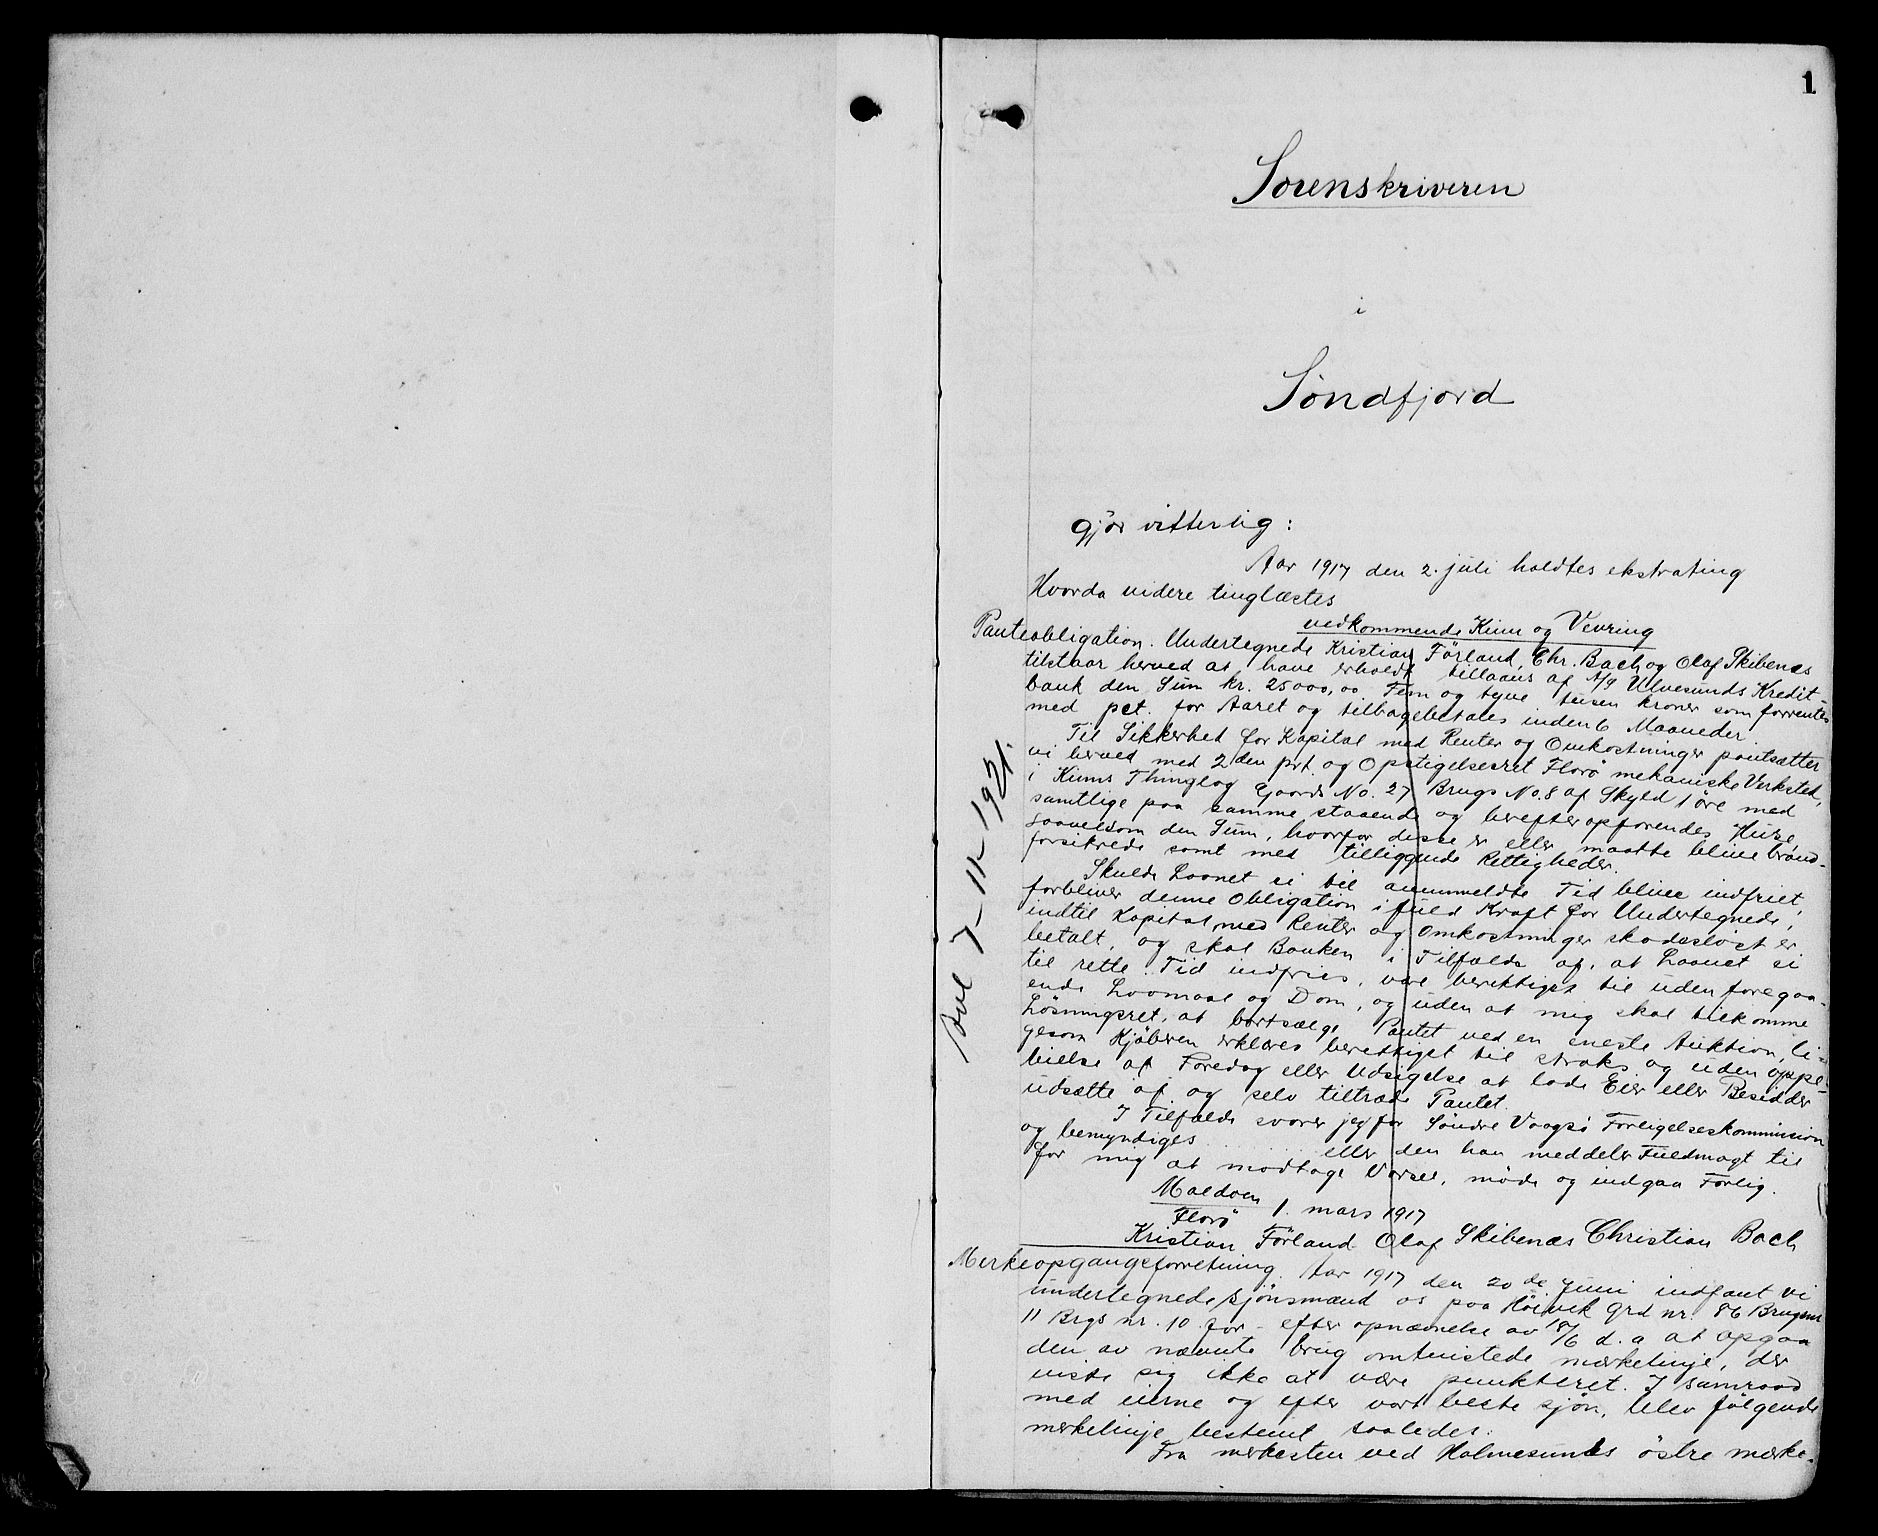 1
Sorenskriveren
i
Söndfjord
gjör vitterlig:
Aar 1917 den 2. juli holdtes ekstrating
Hvorda videre tinglæstes
vedkommende Kinn og Vevring
Panteobligation. Undertegnede Kristian Förland, Chr. Bach og Olaf Skibenæs
tilstaar herved at have erholdt tillaans af A/S Ulvesunds Kredit-
bank den Sum kr. 25000,00 Fem og tyve tusen kroner som forrentes
med pct. for Aaret og tilbagebetales inden 6 Maaneder
Til Sikkerhed for Kapital med Renter og Omkostninger pantsætter
vi herved med 2den prt. og Opstigelsesret Florö mekaniske Verksted,
i Kinns Thinglag Gaards No. 27 Brugs No. 8 af Skyld 1 öre med
samtlige paa samme staaende og herefter opförendes Huse,
saavelsom den Sum, hvorfor disse er eller maatte blive brand-
forsikrede samt med tilliggende Rettigheder.
Skulde Laanet ei til anummeldte Tid blive indfriet,
forbliver denne Obligation i fuld Kraft for Undertegnede,
indtil Kapital med Renter og Omkostninger skadeslöst er
betalt, og skal Banken i Tilfælde af, at Laanet ei
til rette Tid indfries, være berettiget til uden foregaa-
ende Lovmaal og Dom, og uden at mig skal tilkomme
Lösningsret, at bortsælge Pantet ved en eneste Auktion, li-
gesom Kjöberen erklæres berettiget til straks og uden oppe-
bielse af Faredag eller Udsigelse at lade Eier eller Besidder
udsætte af og selv tiltræde Pantet.
I Tilfælde svarer jeg for Söndre Vaagsö Forligelseskommission
og bemyndiges ........ eller den han meddeler Fuldmagt til
for mig at modtage Varsel, möde og indgaa Forlig.
Maaløen
Florö 1. mars 1917
Kristian Förland Olaf Skibenæs Christian Bach
Merkeopgangsforretning. Aar 1917 den 20de juni indfant vi
undertegnede sjönsmænd os paa Höivik grd nr. 86 Brugsnr
11 Brgs nr. 10 for - efter opnævnelse av 18/6 d. a at opgaa
den av nævnte brug omtvistede merkelinje, der
viste sig ikke at være punkteret. I samraad
med eierne og efter vort beste sjön, blev fölgende
merkelinje bestemt saaledes:
Fra merkesten ved Holmesundes östre merke-
Avl 7-11-1921.